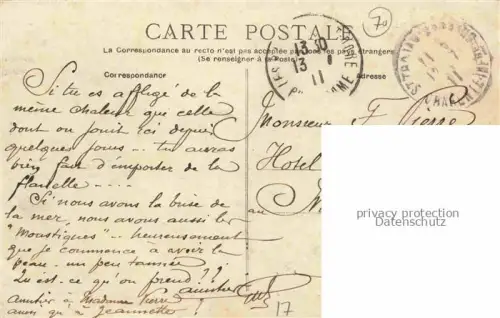 CARTE POSTALE
La Correspondance au recto n'est pas acceptée par tous les pays étrangers
(Se renseigner à la Poste)
Correspondance
Adresse
70
Si tu es affligé de la
même chaleur que celle
dont on jouit ici depuis
quelques jours --- tu auras
bien fait d'emporter de la
flanelle ----
Si nous avons la brise de
la mer, nous avons aussi les
"Moustiques" -- heureusement
que je commence à avoir la
peau un peu tannée
Qu'est-ce qu'on prend ???
amitiés
amitiés à Madame Pierre
ainsi qu'à Jeannette !
Monsieur F. Pierre
Hotel
au
17
13 10
13 1
11
privacy protection
Datenschutz